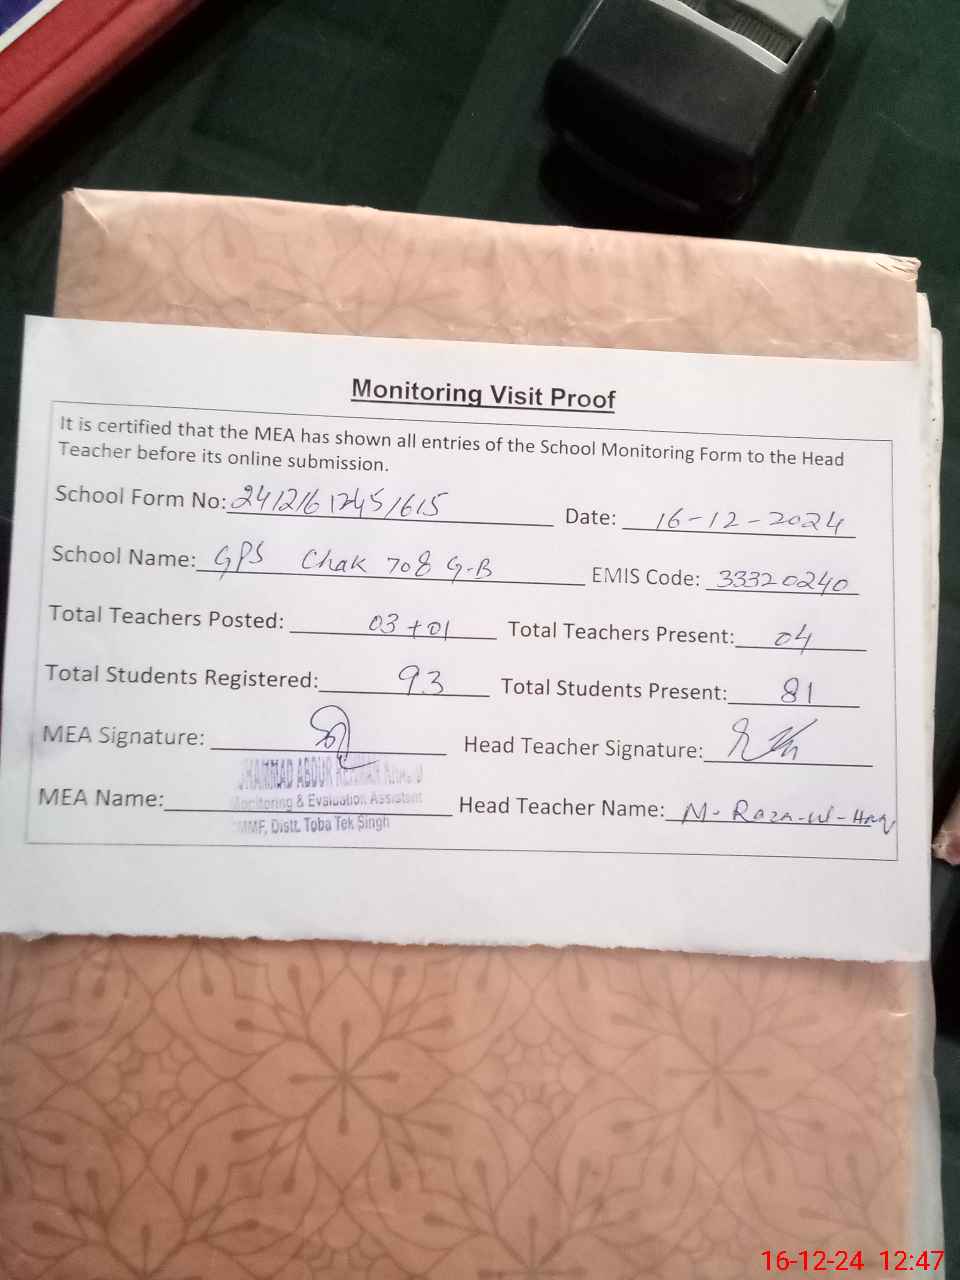 Monitoring Visit Proof
It is certified that the MEA has shown all entries of the School Monitoring Form to the Head
Teacher before its online submission.
School Form No: Date: 16-12-2024
School Name: GPS Chak 708 G-B EMIS Code: 33320240
Total Teachers Posted: 03+01 Total Teachers Present: 04
Total Students Registered: 93 Total Students Present: 81
MEA Signature: Head Teacher Signature:
ABDUR
MEA Name: Monitoring & Evaluation Assistant Head Teacher Name: M. Raza-ul-Haq
MMF, Distt. Toba Tek Singh
16-12-24 12:47